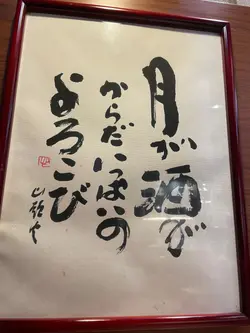 月が酒が
からだいっぱいの
よろこび
山頭火